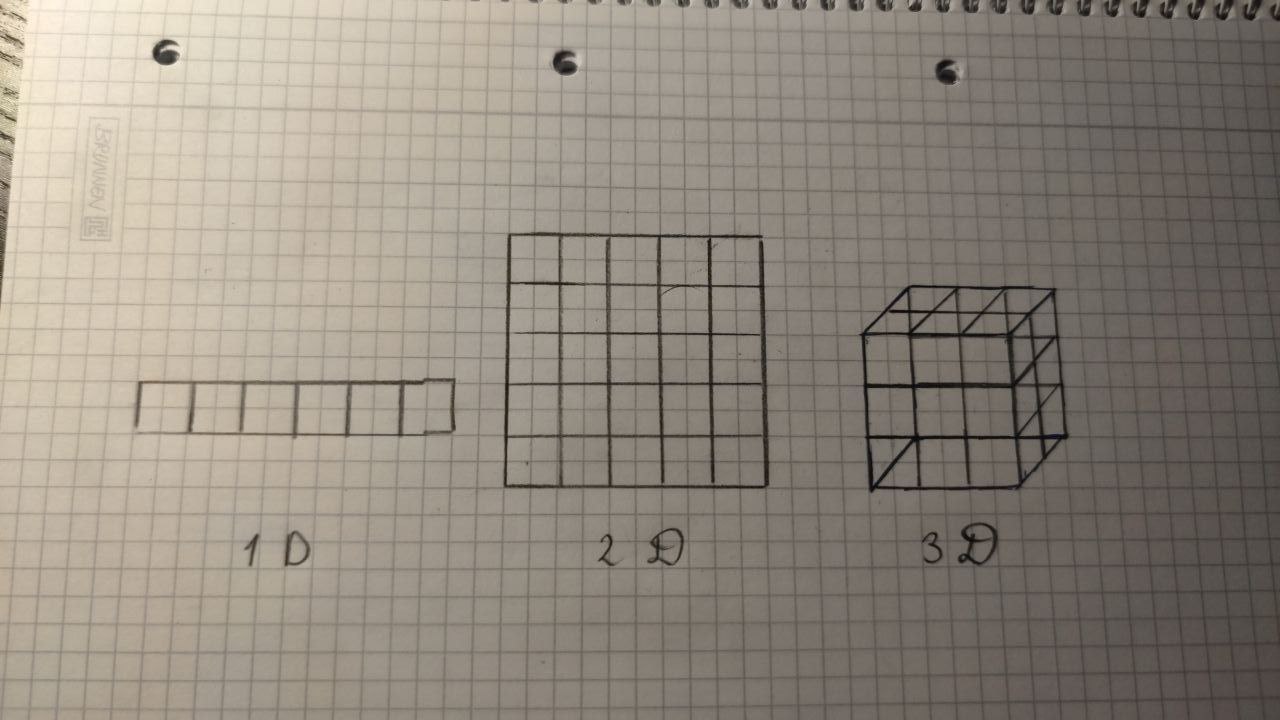 BRUNNEN
1 D 2 D 3 D